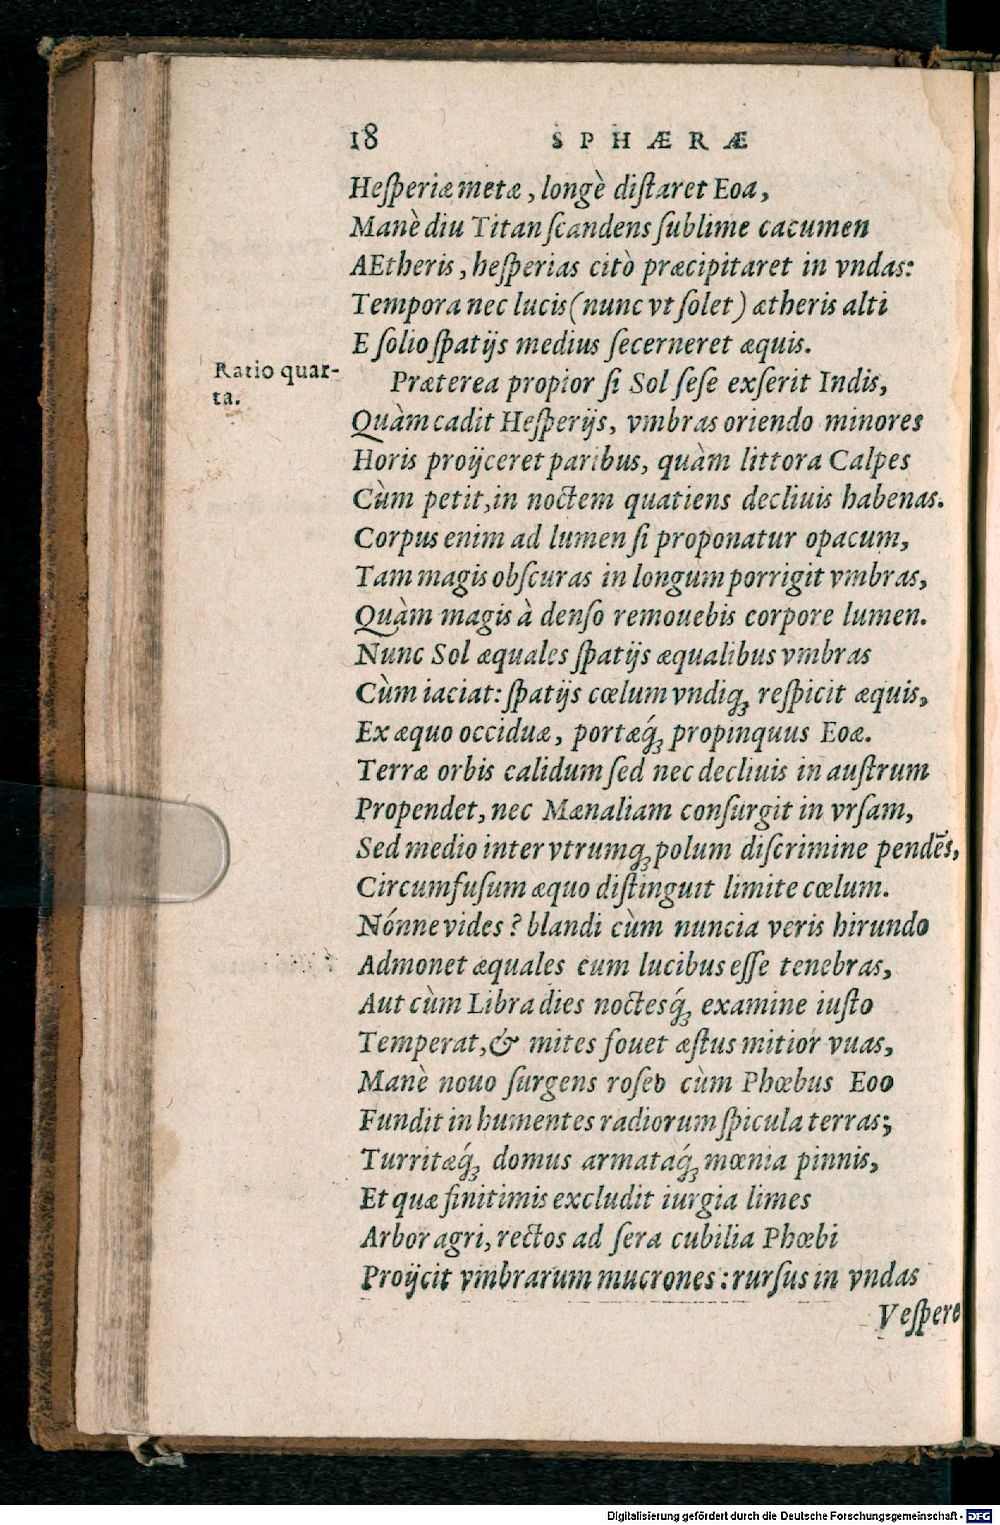 18 SPHÆRÆ
Heſperiæ metæ, longè diſtaret Eoa,
Manè diu Titan ſcandens ſublime cacumen
AEtheris, heſperias citò præcipitaret in vndas:
Tempora nec lucis (nunc vt ſolet) ætheris alti
E ſolio ſpatijs medius ſecerneret æquis.
Ratio quar-
ta.
Præterea propior ſi Sol ſeſe exſerit Indis,
Quàm cadit Heſperijs, vmbras oriendo minores
Horis proijceret paribus, quàm littora Calpes
Cùm petit, in noctem quatiens decliuis habenas.
Corpus enim ad lumen ſi proponatur opacum,
Tam magis obſcuras in longum porrigit vmbras,
Quàm magis à denſo remouebis corpore lumen.
Nunc Sol æquales ſpatijs æqualibus vmbras
Cùm iaciat: ſpatijs cœlum vndiq́; reſpicit æquis,
Ex æquo occiduæ, portæq́; propinquus Eoæ.
Terræ orbis calidum ſed nec decliuis in auſtrum
Propendet, nec Mænaliam conſurgit in vrſam,
Sed medio inter vtrumq; polum diſcrimine pendēs,
Circumfuſum æquo diſtinguit limite cœlum.
Nónne vides? blandi cùm nuncia veris hirundo
Admonet æquales cum lucibus eſſe tenebras,
Aut cùm Libra dies noctesq́; examine iuſto
Temperat, & mites fouet æſtus mitior vuas,
Manè nouo ſurgens roſeo cùm Phœbus Eoo
Fundit in humentes radiorum ſpicula terras;
Turritæq́; domus armataq́; mœnia pinnis,
Et quæ finitimis excludit iurgia limes
Arbor agri, rectos ad ſera cubilia Phœbi
Proijcit vmbrarum mucrones: rurſus in vndas
Veſpere
Digitalisierung gefördert durch die Deutsche Forschungsgemeinschaft - DFG